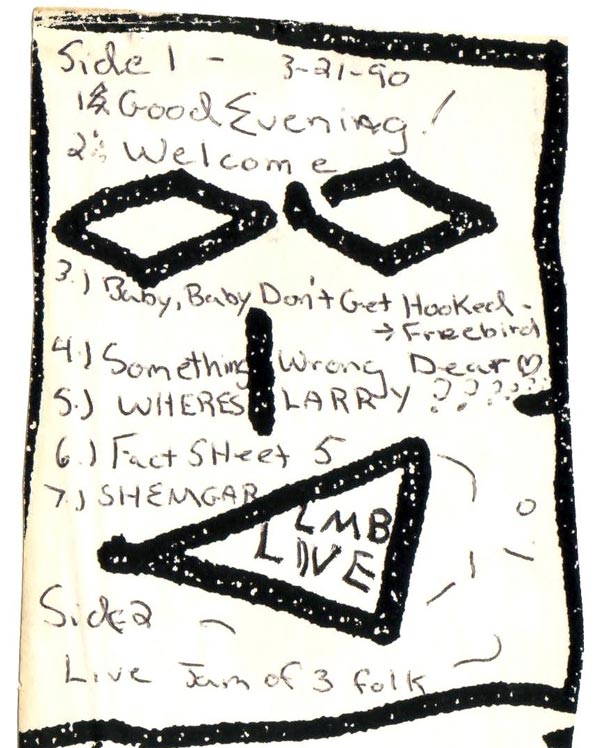 Side 1 - 3-21-90
Good Evening!
2.) Welcome
3.) Baby, Baby Don't Get Hooked -
→ Freebird
4.) Something Wrong Dear ♡
5.) WHERES LARRY ??????
6.) Fact SHeet 5
7.) SHEMGAR
LMB
LIVE
Side 2
Live Jam of 3 folk